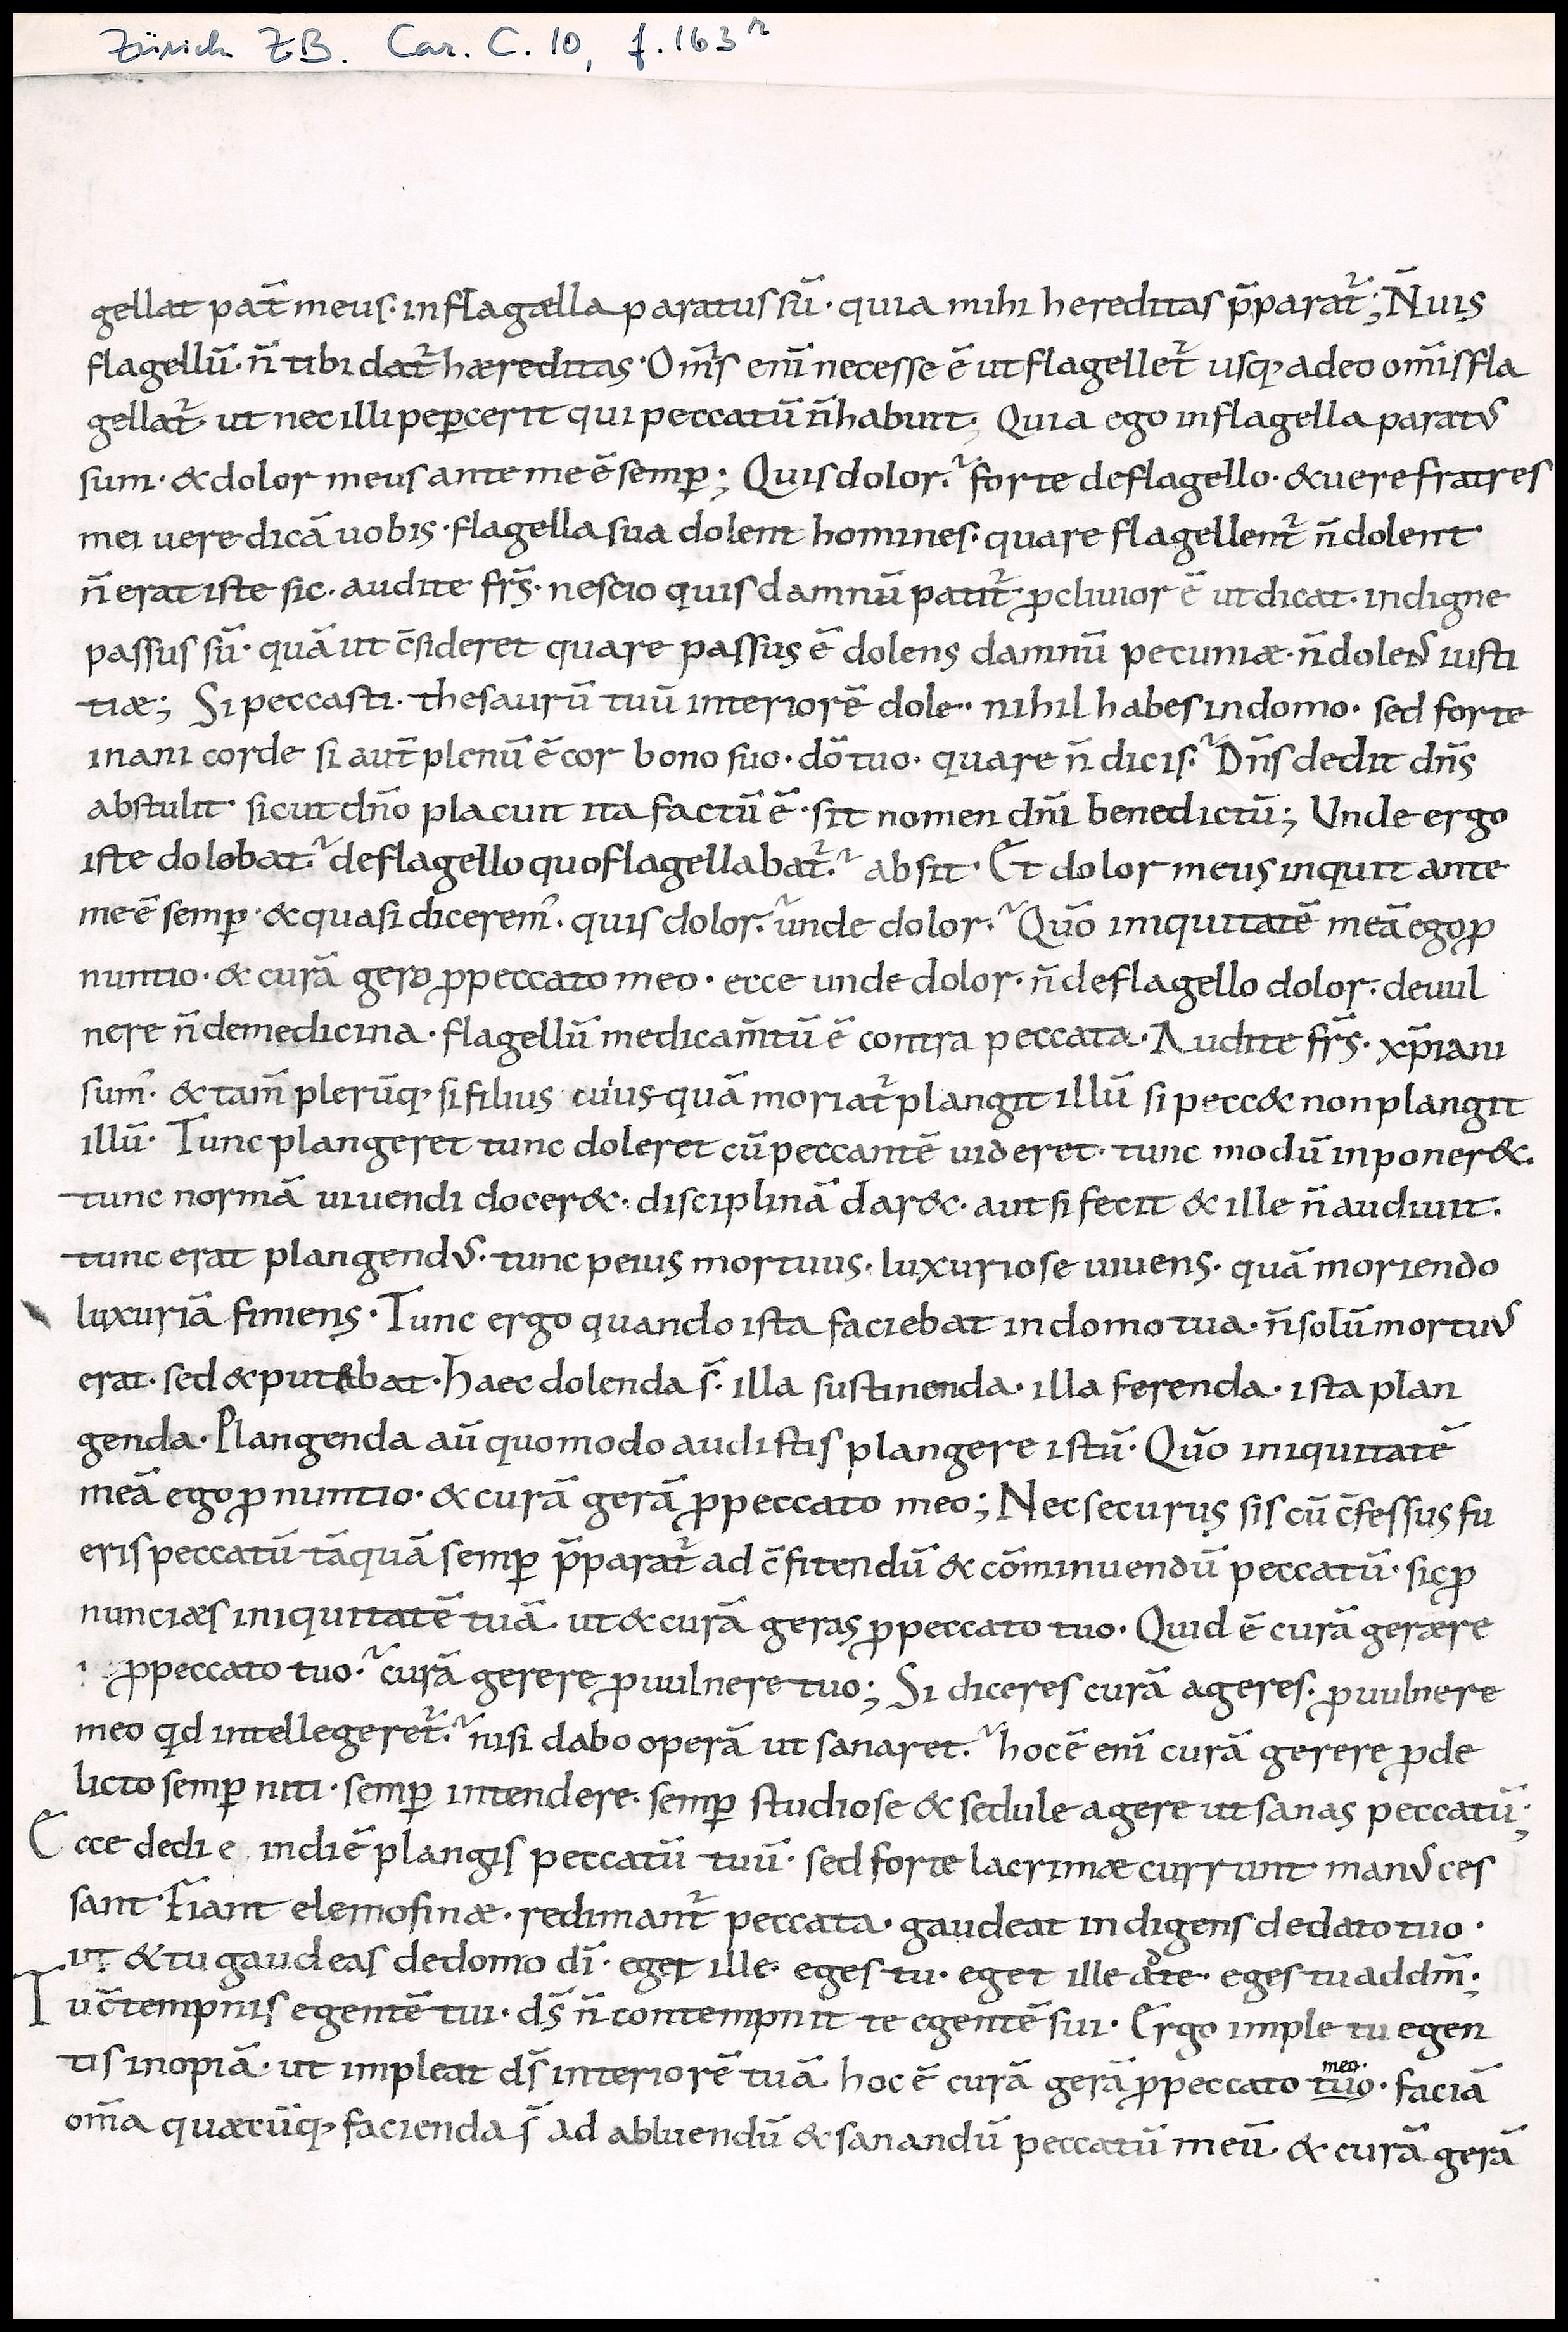 Zürich ZB. Car. C. 10, f. 163r
gellat pat̄ meus· inflagella paratus sū· quia mihi hereditas p̄parat̄᷑; N̄ uis
flagellū· n̄ tibi dat̄᷑ hæreditas· Om̄is enī necesse ē ut flagellet̄᷑ usq· adeo om̄is fla
gellat̄᷑· ut nec illi peꝑcerit qui peccatū n̄ habuit; Quia ego inflagella paratꝰ
sum· & dolor meus ante me ē semꝑ; Quis dolor? forte deflagello· & uere fratres
mei uere dicā uobis· flagella sua dolent homines· quare flagellent̄᷑ n̄ dolent
n̄ erat iste sic· audite fr̄s· nescio quis damnū patit̄᷑· ꝓcliuior ē ut dicat· indigne
passus sū· quā ut c̄sideret quare passus ē dolens damnū pecuniæ· n̄ dolenꝰ iusti
tiæ; Si peccasti· thesaurū tuū interiorē dole· nihil habes indomo· sed forte
inani corde si aut̄ plenū ē cor bono suo· dō tuo· quare n̄ dicis? Dn̄s dedit dn̄s
abstulit· sicut dn̄o placuit ita factū ē· sit nomen dn̄i benedictū; Unde ergo
iste dolebat? deflagello quo flagellabat̄᷑? absit· Et dolor meus inquit ante
me ē semꝑ· & quasi diceremꝰ· quis dolor? unde dolor? Qūo iniquitatē meā ego ꝓ
nuntio· & curā gero ꝓpeccato meo· ecce unde dolor· n̄ deflagello dolor· deuul
nere n̄ demedicina· flagellū medicam̄tū ē contra peccata· Audite fr̄s· xp̄iani
sumꝰ· & tam̄ plerūq· si filius cuius quā moriat̄᷑ plangit illū si pecc& non plangit
illū· Tunc plangeret tunc doleret cū peccantē uideret· tunc modū inponer&·
tunc normā uiuendi docer&· disciplinā dar&· aut si fecit & ille n̄ audiuit·
tunc erat plangendꝰ· tunc peius mortuus· luxuriose uiuens· quā moriendo
luxuriā finiens· Tunc ergo quando ista faciebat indomo tua· n̄ solū mortuꝰ
erat· sed & putebat· haec dolenda s̄· illa sustinenda· illa ferenda· ista plan
genda· Plangenda aū quomodo audistis plangere istū· Qūo iniquitatē
meā ego ꝓnuntio· & curā gerā ꝓpeccato meo; Nec securus sis cū c̄fessus fu
eris peccatū tāquā semꝑ p̄parat̄᷑ ad c̄fitendū & cōminuendū peccatū· sic ꝓ
nuncias iniquitatē tuā· ut & curā geras ꝓpeccato tuo· Quid ē curā gerere
ꝓpeccato tuo? curā gerere ꝓuulnere tuo; Si diceres curā ageres· ꝓuulnere
meo qd intellegeret̄᷑? nisi dabo operā ut sanaret? hoc ē enī curā gerere ꝓde
licto semꝑ niti· semꝑ intendere· semꝑ studiose & sedule agere ut sanas peccatū;
Ecce dedi e indiē plangis peccatū tuū· sed forte lacrimæ currunt manꝰ ces
sant· Fiant elemosinæ· redimant̄᷑ peccata· gaudeat indigens dedato tuo·
ut & tu gaudeas dedomo dī· eget ille· eges tu· eget ille ad te· eges tu ad dm̄;
Tu c̄tempnis egentē tui· ds̄ n̄ contempnit te egentē sui· Ergo imple tu egen
tis inopiā· ut impleat ds̄ interiorē tuā· hoc ē curā gerā ꝓpeccato tuo meo· faciā
om̄a quæcūq· facienda s̄ ad abluendū & sanandū peccatū meū· & curā gerā